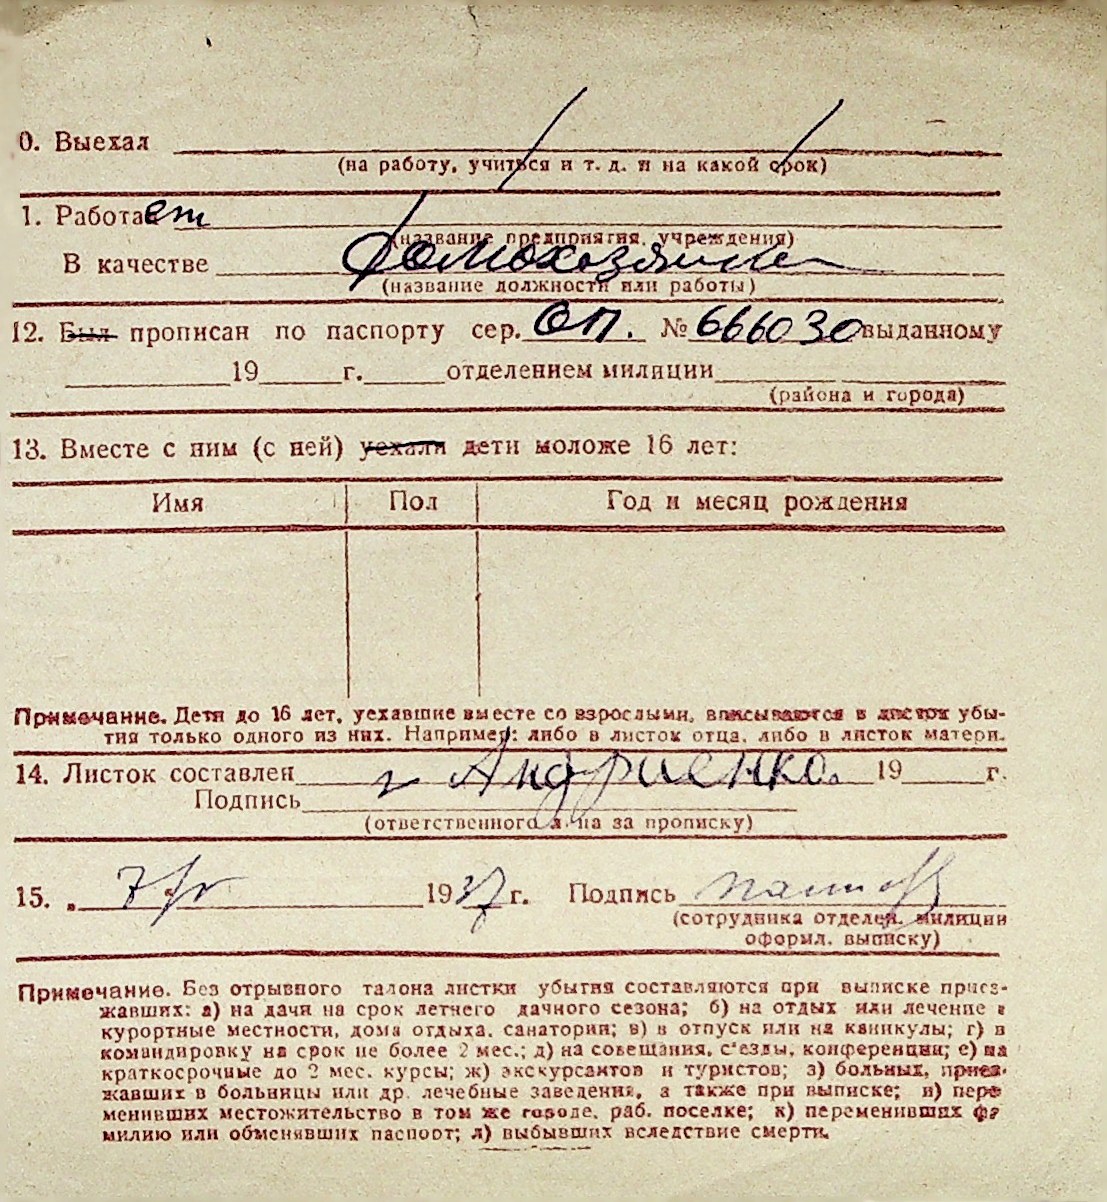 0. Выехал
(на работу, учиться и т. д. и на какой срок)
1. Работает
(название предприятия, учреждения)
В качестве домохозяйка
(название должности или работы)
12. Был прописан по паспорту сер. ОП. № 666030 выданному
19 г. отделением милиции
(района и города)
13. Вместе с ним (с ней) уехали дети моложе 16 лет:
Имя Пол Год и месяц рождения
Примечание. Дети до 16 лет, уехавшие вместе со взрослыми, вписываются в листок убы-
тия только одного из них. Например: либо в листок отца, либо в листок матери.
14. Листок составлен Андриенко 19 г.
Подпись
(ответственного лица за прописку)
15. „ 7 1937 г. Подпись
(сотрудника отделен. милиции
оформл. выписку)
Примечание. Без отрывного талона листки убытия составляются при выписке приез-
жавших: а) на дачи на срок летнего дачного сезона; б) на отдых или лечение в
курортные местности, дома отдыха, санатории; в) в отпуск или на каникулы; г) в
командировку на срок не более 2 мес.; д) на совещания, с'езды, конференции; е) на
краткосрочные до 2 мес. курсы; ж) экскурсантов и туристов; з) больных, приез-
жавших в больницы или др. лечебные заведения, а также при выписке; и) пере
менивших местожительство в том же городе, раб. поселке; к) переменивших фа
милию или обменявших паспорт; л) выбывших вследствие смерти.